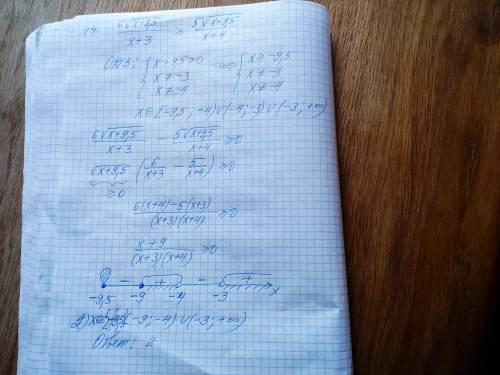 14. 6√x+9,5 / x+3 ≥ 5√x+9,5 / x+4
ОДЗ: { x+9,5≥0 ⇔ { x≥-9,5
x≠-3 x≠-3
x≠-4 x≠-4
x∈[-9,5; -4)∪(-4;-3)∪(-3;+∞)
6√x+9,5 / x+3 - 5√x+9,5 / x+4 ≥0
√x+9,5 (6 / x+3 - 5 / x+4) ≥0
≥0
6(x+4)-5(x+3) / (x+3)(x+4) ≥0
x+9 / (x+3)(x+4) ≥0
- + - + x
-9,5 -9 -4 -3
2) x∈ -9; -4)∪(-3; +∞)
Ответ: 2